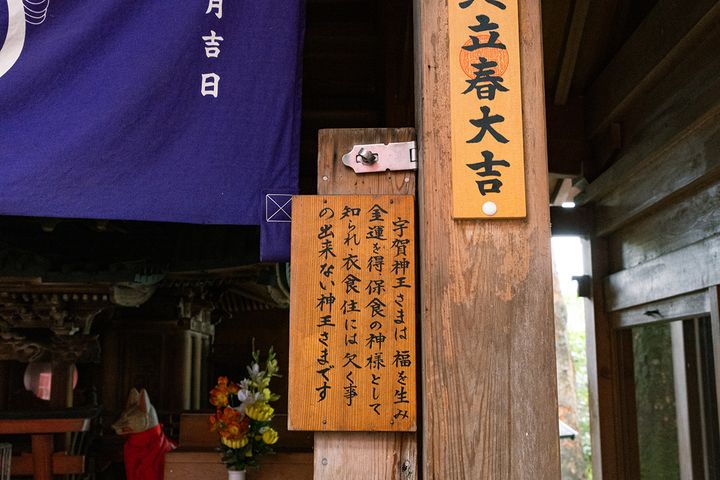 月吉日
立春大吉
宇賀神王さまは 福を生み
金運を得・保食の神様として
知られ・衣食住には欠く事
の出来ない神王さまです